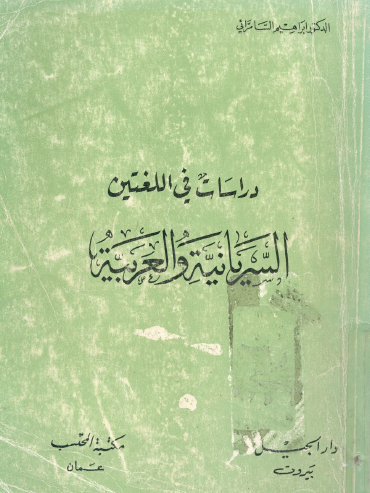 الدكتور إبراهيم السامرائي
دراسات في اللغتين
السريانية والعربية
دار الجيل
بيروت
مكتبة المحتسب
عمان